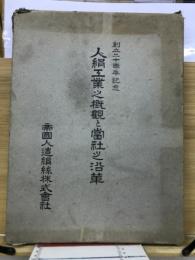 創立二十周年記念
人絹工業之概觀と當社之沿革
帝國人造絹絲株式會社